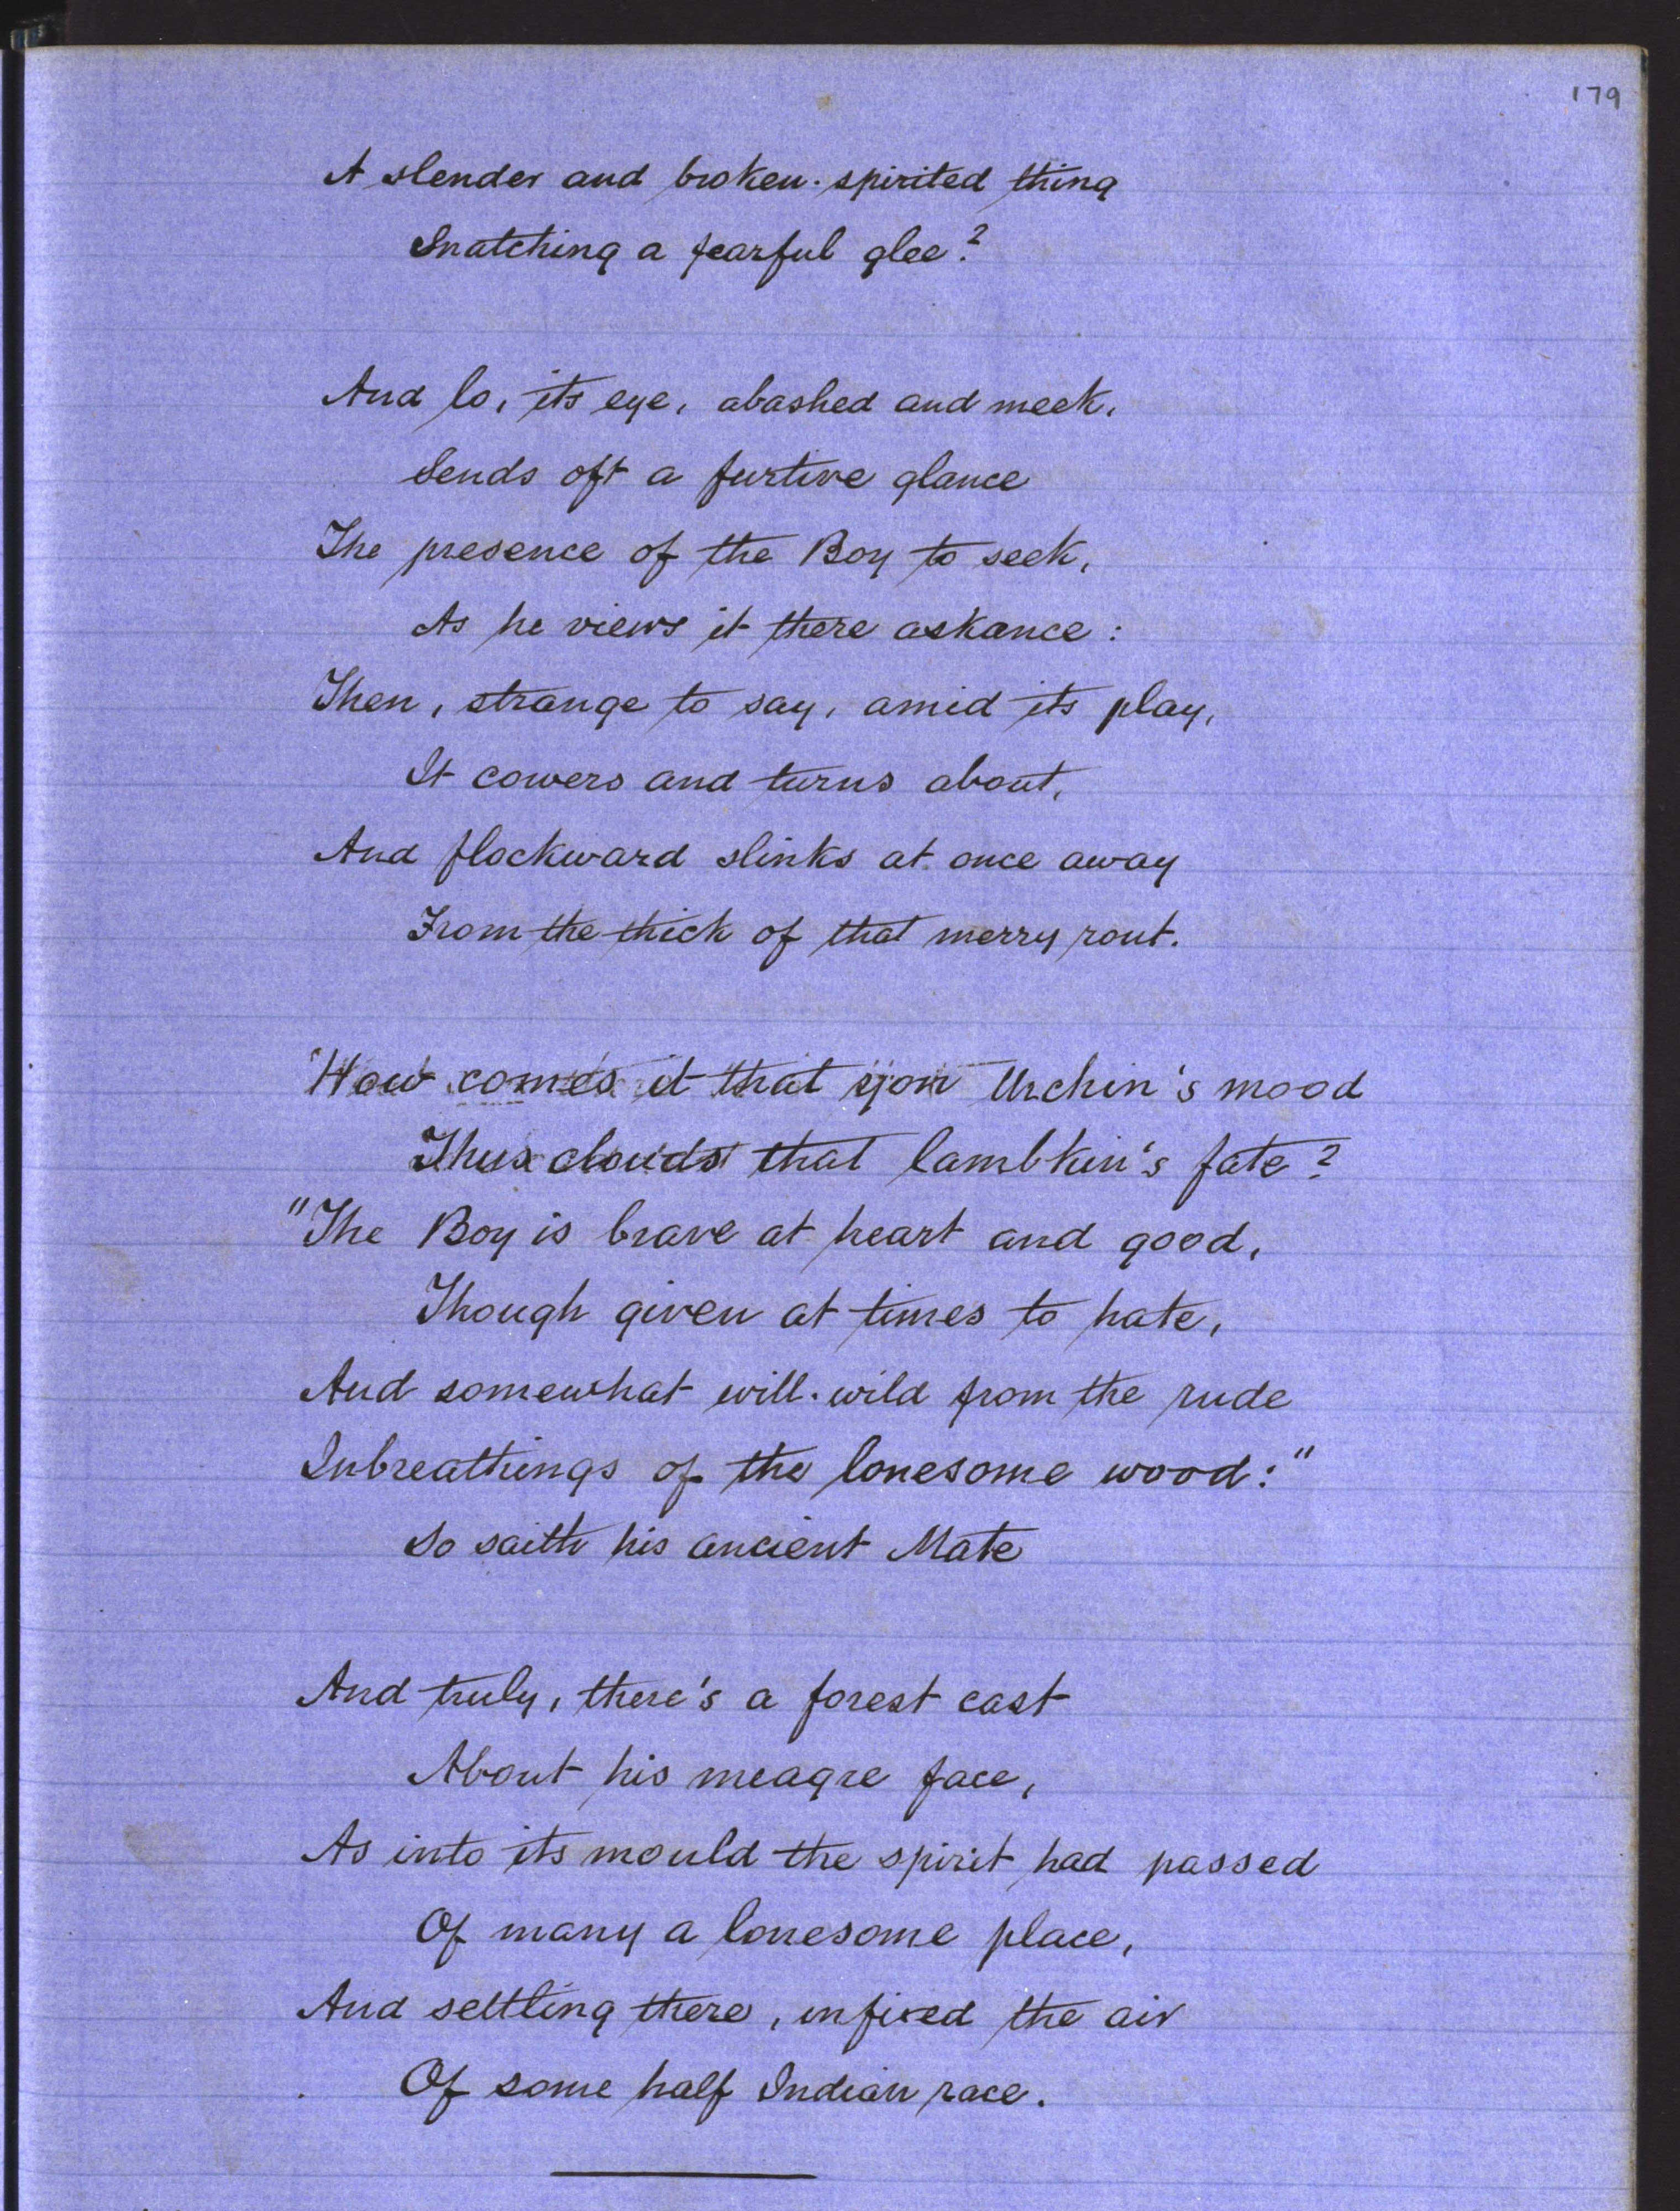 179
A slender and broken-spirited thing
Snatching a fearful glee?
And lo, its eye, abashed and meek,
Sends oft a furtive glance
The presence of the Boy to seek,
As he views it there askance:
Then, strange to say, amid its play,
It cowers and turns about,
And flockward slinks at once away
From the thick of that merry rout.
How comes it that yon Urchin's mood
Thus clouds that lambkin's fate?
"The Boy is brave at heart and good,
Though given at times to hate,
And somewhat will-wild from the rude
Inbreathings of the lonesome wood:"
So saith his ancient Mate
And truly, there's a forest cast
About his meagre face,
As into its mould the spirit had passed
Of many a lonesome place,
And settling there, infixed the air
Of some half Indian race.